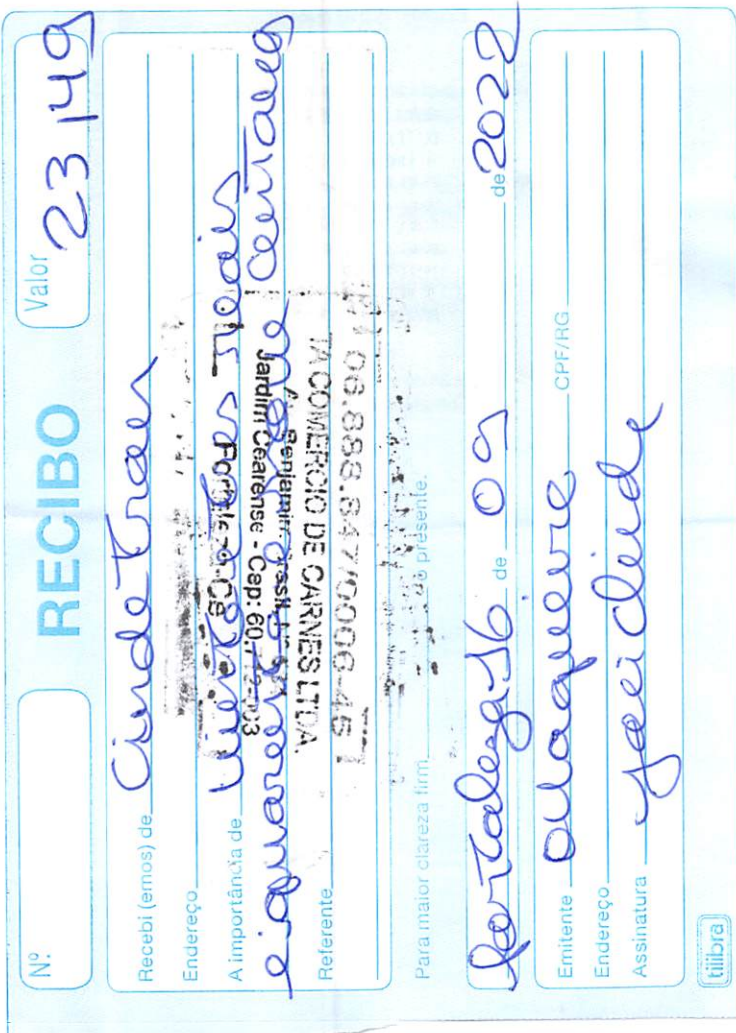 Nº
RECIBO
Valor 23,49
Recebi (emos) de
Endereço
A importância de vinte e tres reais
e quarenta e nove centavos
Referente
06.888.847/0006-45
COMERCIO DE CARNES LTDA.
Benjamin Brasil
Jardim Cearense - Cep:
Fortaleza-CE
Para maior clareza firm o presente.
fortaleza 16 de 09 de 2022
Emitente CPF/RG
Endereço
Assinatura
tilibra